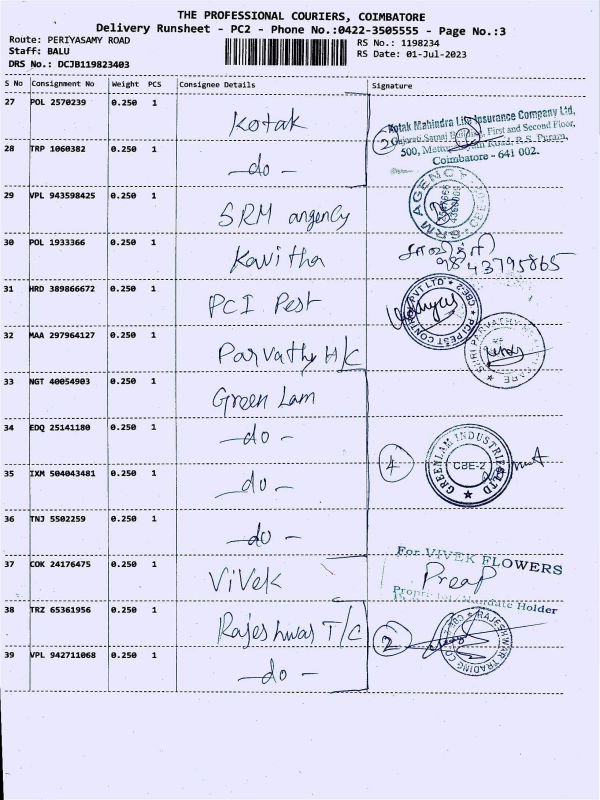 THE PROFESSIONAL COURIERS, COIMBATORE
Delivery Runsheet - PC2 - Phone No.:0422-3505555 - Page No.:3
Route: PERIYASAMY ROAD
RS No.: 1198234
Staff: BALU
RS Date: 01-Jul-2023
DRS No.: DCJB119823403
S No Consignment No Weight PCS Consignee Details Signature
27 POL 2570239 0.250 1 Kotak
Kotak Mahindra Life Insurance Company Ltd,
2 Gujarati Samaj Building, First and Second Floor,
500, Road, R.S. Puram,
Coimbatore - 641 002.
28 TRP 1060382 0.250 1 -do-
29 VPL 943598425 0.250 1 SRM angency
SRM AGENCY
30 POL 1933366 0.250 1 Kavitha
சாவித்ரி
9843795865
31 HRD 389866672 0.250 1 PCI Pest
PCI PEST CONTROL PVT LTD CBE-2
32 MAA 297964127 0.250 1 Parvathy H/C
SHRI PARVATHY CARE
33 NGT 40054903 0.250 1 Green Lam
34 EDQ 25141180 0.250 1 -do-
4
GREENLAM INDUSTRIES LTD
CBE-2
35 IXM 504043481 0.250 1 -do-
36 TNJ 5502259 0.250 1 -do-
37 COK 24176475 0.250 1 ViVek
For VIVEK FLOWERS
Mandate Holder
38 TRZ 65361956 0.250 1 Rajeshwar T/C
2
RAJESHWAR TRADING CO
39 VPL 942711068 0.250 1 -do-